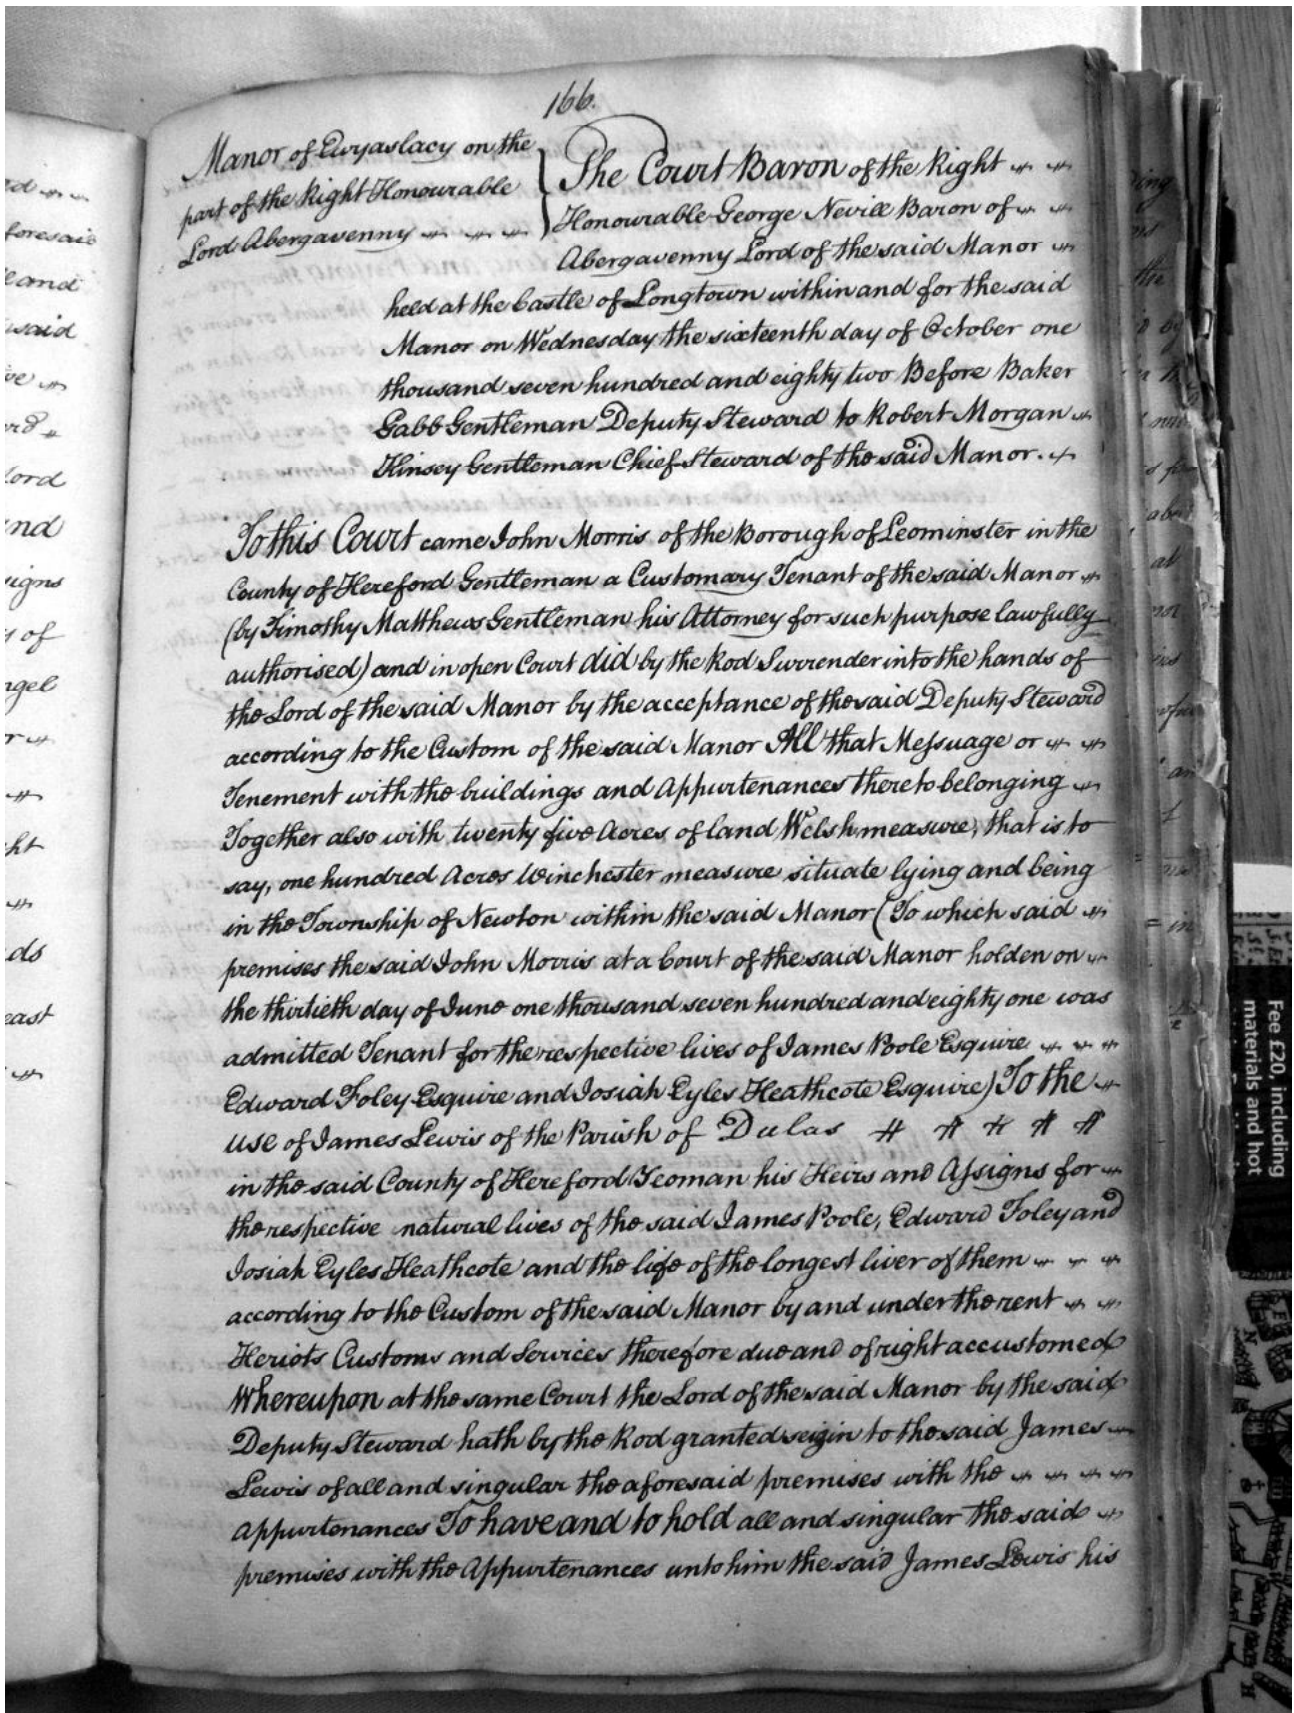 166.
Manor of Ewyaslacy on the
part of the Right Honourable
Lord Abergavenny
The Court Baron of the Right
Honourable George Nevill Baron of
Abergavenny Lord of the said Manor
held at the Castle of Longtown within and for the said
Manor on Wednesday the sixteenth day of October one
thousand seven hundred and eighty two Before Baker
Gabb Gentleman Deputy Steward to Robert Morgan
Kinsey Gentleman Chief Steward of the said Manor.
To this Court came John Morris of the Borough of Leominster in the
County of Hereford Gentleman a Customary Tenant of the said Manor
(by Timothy Matthews Gentleman his Attorney for such purpose lawfully
authorised) and in open Court did by the Rod Surrender into the hands of
the Lord of the said Manor by the acceptance of the said Deputy Steward
according to the Custom of the said Manor All that Messuage or
Tenement with the buildings and Appurtenances thereto belonging
Together also with twenty five Acres of land Welsh measure, that is to
say, one hundred Acres Winchester measure situate lying and being
in the Township of Newton within the said Manor (To which said
premises the said John Morris at a Court of the said Manor holden on
the thirtieth day of June one thousand seven hundred and eighty one was
admitted Tenant for the respective lives of James Poole Esquire
Edward Foley Esquire and Josiah Eyles Heathcote Esquire) To the
use of James Lewis of the Parish of Dulas
in the said County of Hereford Yeoman his Heirs and Assigns for
the respective natural lives of the said James Poole, Edward Foley and
Josiah Eyles Heathcote and the life of the longest liver of them
according to the Custom of the said Manor by and under the rent
Heriots Customs and Services therefore due and of right accustomed
Whereupon at the same Court the Lord of the said Manor by the said
Deputy Steward hath by the Rod granted seizin to the said James
Lewis of all and singular the aforesaid premises with the
Appurtenances To have and to hold all and singular the said
premises with the Appurtenances unto him the said James Lewis his
Fee £20, including
materials and hot